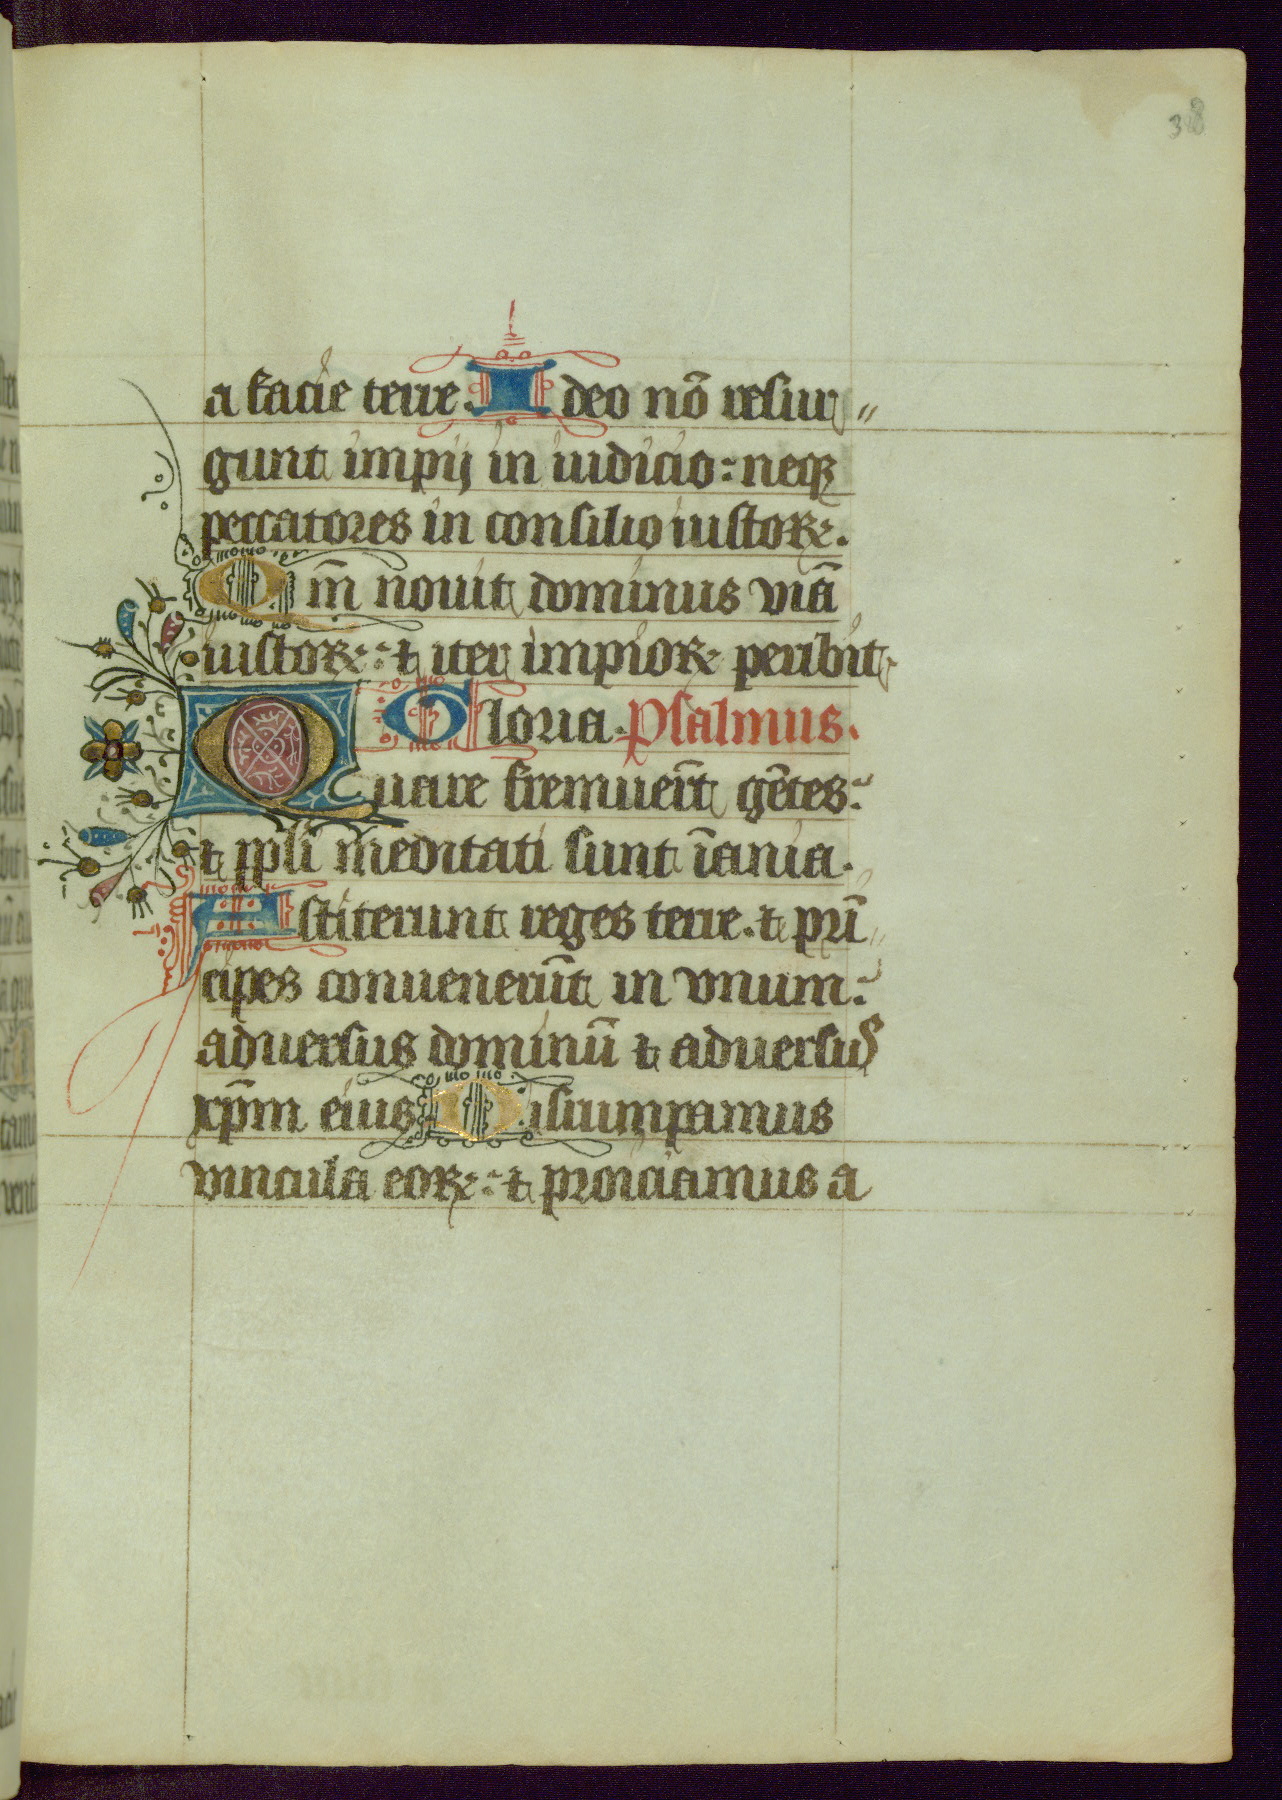 38
a facie terre. Ideo nō resur〃
gunt impij in iudicio: neqꝫ
peccatores in consilio iustoꝝ.
Qm̄ nouit dominus viā
iustoꝝ: ⁊ iter impioꝝ peribit.
Gloria. Psalmus.
Quare fremuer̄t gētes:
⁊ ppl̄i meditati sunt īania.
Astiterunt reges terre. ⁊ prī〃
cipes conuenerūt in vnum:
aduersus dominū ⁊ aduersus
xp̄m eius. Disrumpamus
vincula eoꝝ: ⁊ proiciamus a